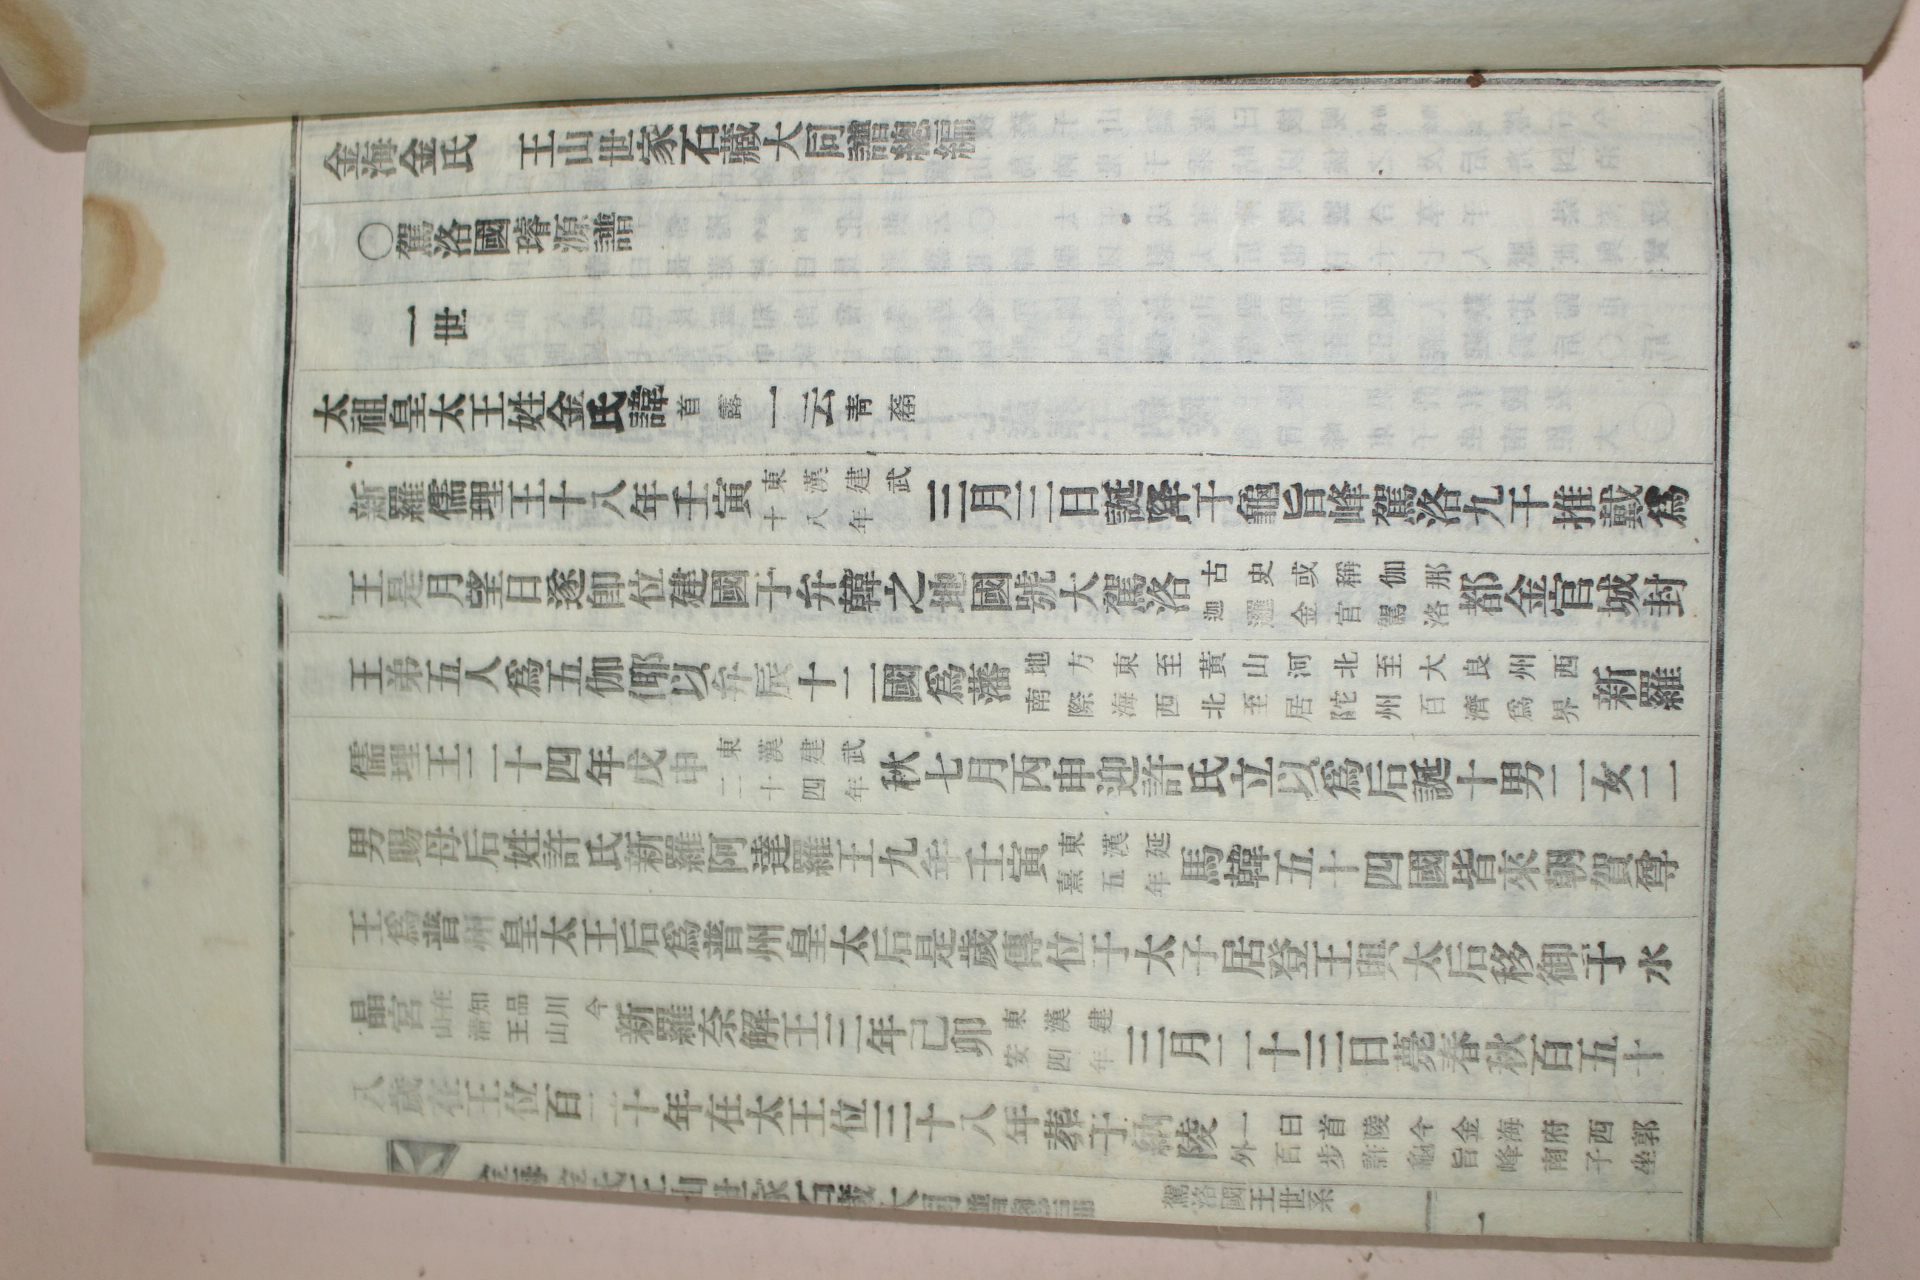 金海金氏 王山世家石藏大同譜總編
〇駕洛國璿源譜
一世
太祖皇太王姓金氏諱首露一云靑裔
新羅儒理王十八年壬寅東漢建武十八年三月三日誕降于龜旨峰駕洛九干推戴爲
王是月望日遂卽位建國于弁韓之地國號大駕洛古史或稱伽那迦邏金官駕洛都金官城封
王弟五人爲五伽倻以弁辰十二國爲藩地方東至黃山河北至大良州西南際海西北至居陀州百濟爲界新羅
儒理王二十四年戊申東漢建武二十四年秋七月丙申迎許氏立以爲后誕十男二女二
男賜母后姓許氏新羅阿達羅王九年壬寅東漢延熹五年馬韓五十四國皆來朝賀尊
王爲普州皇太王后爲普州皇太后是歲傳位于太子居登王與太后移御于水
晶宮在知品川今山淸王山新羅奈解王三年己卯東漢建安四年三月二十三日薨春秋百五十
八歲在王位百二十年在太王位三十八年葬于納陵一曰首陵今金海府西郭外百步許龜旨峰南子坐
金海金氏王山世家石藏大同譜總編 駕洛國王世系 一